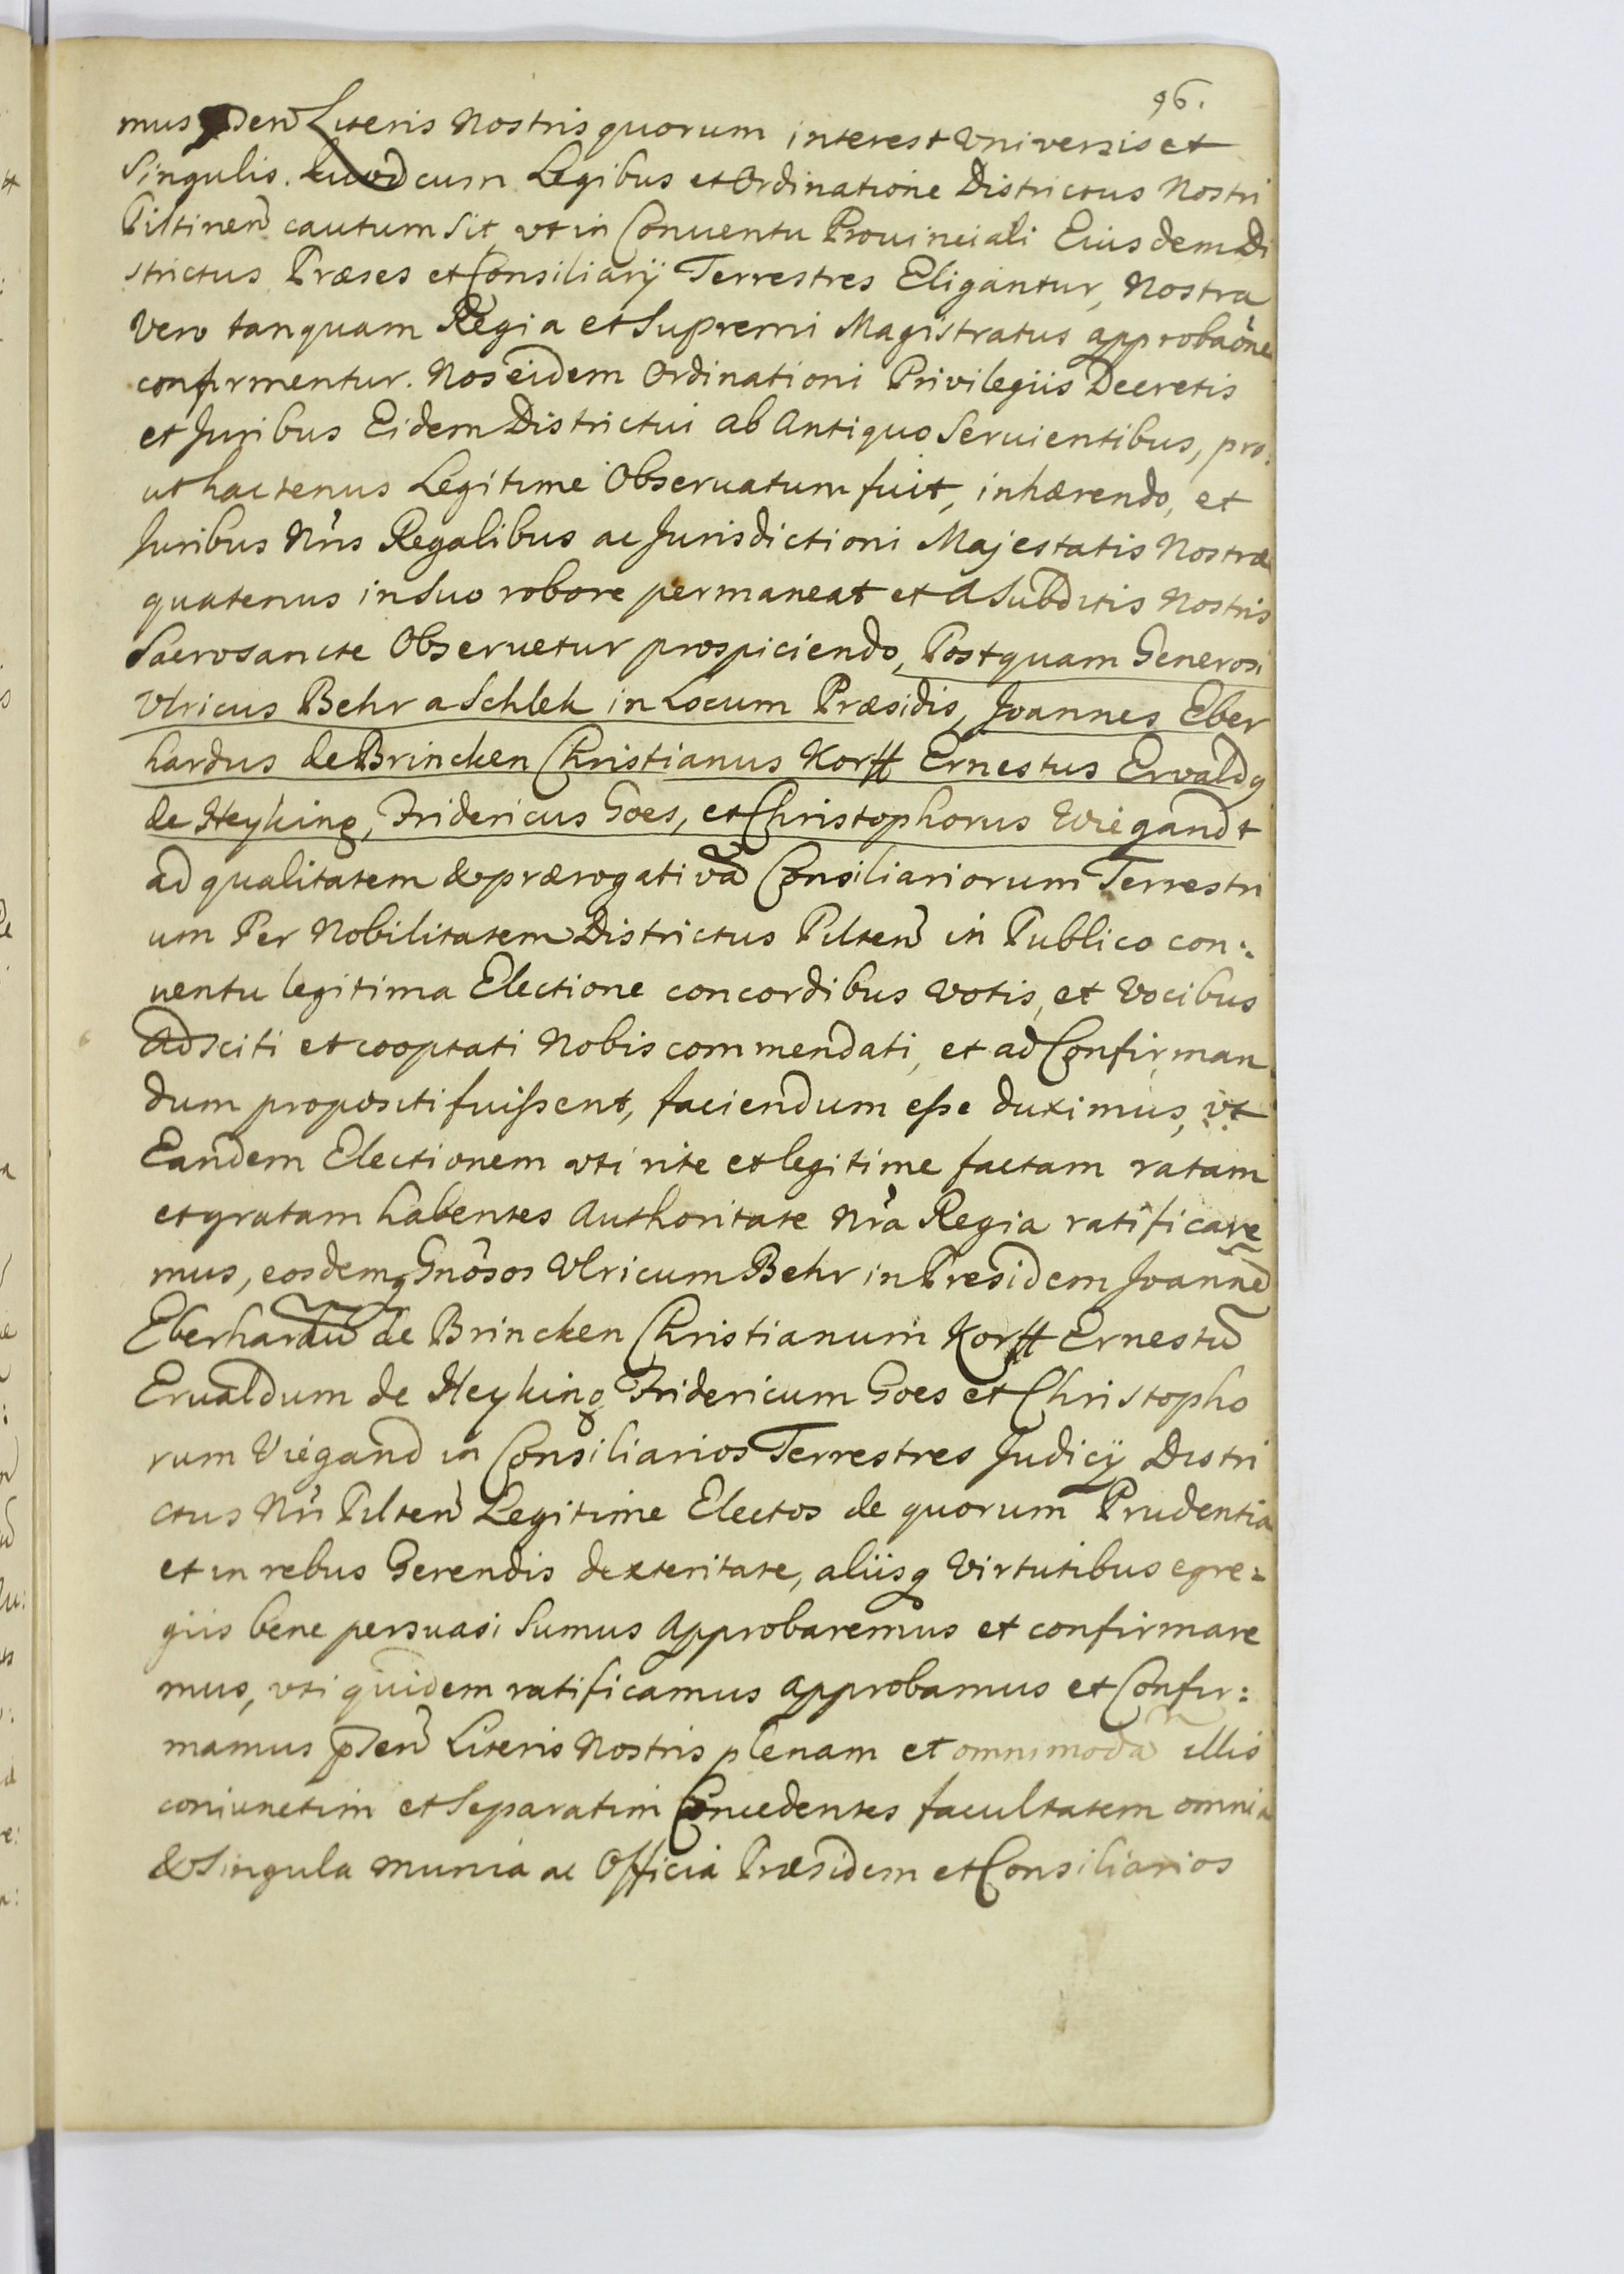 96.
mus pñsen̄ Literis Nostris quorum interest Vniversis et
Singulis. Quod cum Legibus et Ordinatione Districtus Nostri
Piltinen̄ cautum sit, vt in Conuentu Prouinciali Eiusdem Di
strictus Præses et Consiliarÿ Terrestres Eligantur, Nostra
Vero tanquam Regia et Supremi Magistratus approbaõne
confirmentur. Nos eidem Ordinationi Privilegiis Decretis
et Juribus Eidem Districtui ab Antiquo Seruientibus, pro:
ut hactenus Legitime Obseruatum fuit, inhærendo, et
Juribus Nris Regalibus ac Jurisdictioni Majestatis Nostræ
quatenus in Suo robore permaneat et a Subditis Nostris
Sacrosancte Obseruetur prospiciendo, Postquam Generosi
Vlricus Behr a Schlek in Locum Præsidis, Joannes Eber
hardus de Brincken Christianus Korff Ernestus Ervaldq
de Heyking, Fridericus Goes, et Christophorus Wiegandt
ad qualitatem & prærogativā Consiliariorum Terrestri
um Per Nobilitatem Districtus Pilten̄ in Publico con:
uentu legitima Electione concordibus votis, et Vocibus
Adsciti et cooptati Nobis commendati, et ad Confirman
dum propositi fuißent, faciendum eße duximus, vt
Eandem Electionem vti rite et legitime factam ratam
et gratam habentes Authoritate Nrã Regia ratificare
mus, eosdemq Gnõsos Vlricum Behr in Presidem Joannē
Eberhardū de Brincken Christianum Korff Ernestū
Ervaldum de Heyking Fridericum Goes et Christopho
rum Viegand in Consiliarios Terrestres Judicÿ Distri
ctus Nri Pilten̄ Legitime Electos de quorum Prudentia
et in rebus Gerendis dexteritate, aliisq Virtutibus egre=
giis bene persuasi Sumus Approbaremus et confirmare
mus, vti quidem ratificamus approbamus et Confir:
mamus pñsen̄ Literis Nostris plenam et omnimodā illis
coniunctim et Separatim Concedentes facultatem omnia
& Singula munia ac Officia Præsidem et Consiliarios